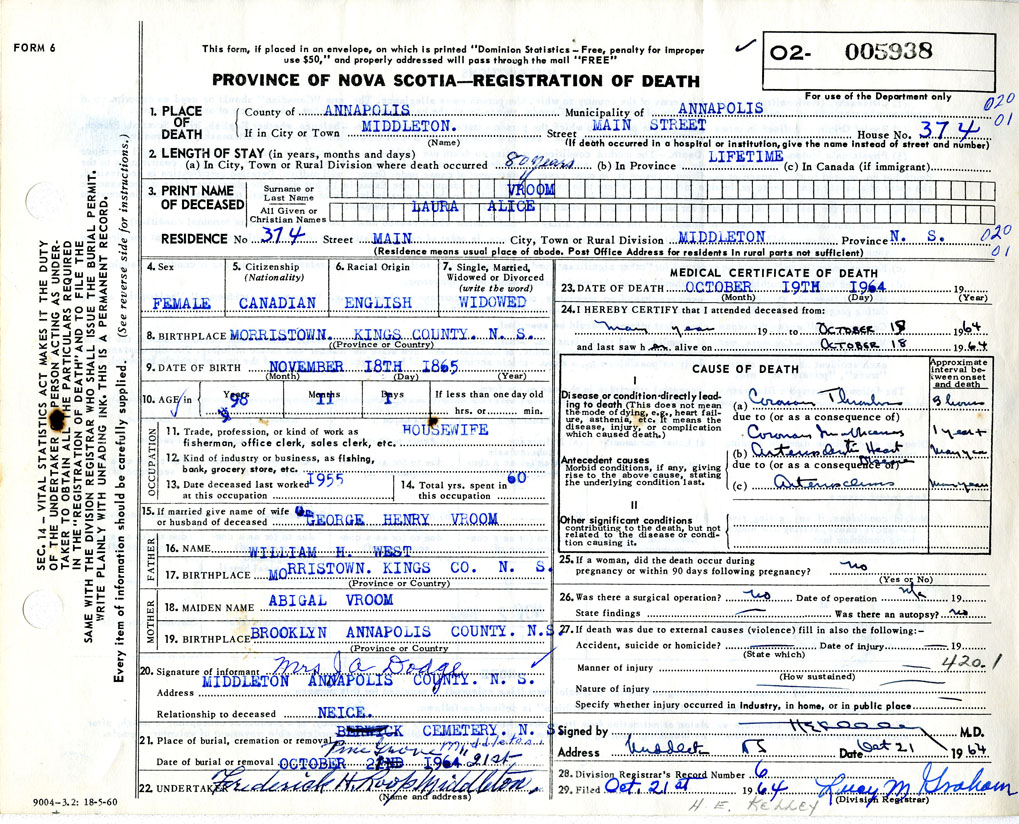 FORM 6
This form, if placed in an envelope, on which is printed "Dominion Statistics – Free, penalty for improper
use $50," and properly addressed will pass through the mail "FREE"
✓ O2- 005938
PROVINCE OF NOVA SCOTIA—REGISTRATION OF DEATH
For use of the Department only
1. PLACE OF DEATH
County of ANNAPOLIS Municipality of ANNAPOLIS
020
01
If in City or Town MIDDLETON. Street MAIN STREET House No. 374
(Name) (If death occurred in a hospital or institution, give the name instead of street and number)
2. LENGTH OF STAY (in years, months and days)
(a) In City, Town or Rural Division where death occurred 80 years (b) In Province LIFETIME (c) In Canada (if immigrant)
3. PRINT NAME OF DECEASED
Surname or Last Name VROOM
All Given or Christian Names LAURA ALICE
RESIDENCE No 374 Street MAIN City, Town or Rural Division MIDDLETON Province N. S.
020
01
(Residence means usual place of abode. Post Office Address for residents in rural parts not sufficient)
4. Sex FEMALE
5. Citizenship (Nationality) CANADIAN
6. Racial Origin ENGLISH
7. Single, Married, Widowed or Divorced (write the word) WIDOWED
8. BIRTHPLACE MORRISTOWN. KINGS COUNTY. N. S.
((Province or Country)
9. DATE OF BIRTH NOVEMBER 18TH 1865
(Month) (Day) (Year)
10. AGE in Years 98 Months 11 Days 1 If less than one day old
hrs. or min.
OCCUPATION
11. Trade, profession, or kind of work as HOUSEWIFE
fisherman, office clerk, sales clerk, etc.
12. Kind of industry or business, as fishing,
bank, grocery store, etc.
13. Date deceased last worked at this occupation 1955
14. Total yrs. spent in this occupation 60
15. If married give name of wife or husband of deceased GEORGE HENRY VROOM
FATHER
16. NAME WILLIAM H. WEST
17. BIRTHPLACE MORRISTOWN. KINGS CO. N. S.
(Province or Country)
MOTHER
18. MAIDEN NAME ABIGAL VROOM
19. BIRTHPLACE BROOKLYN ANNAPOLIS COUNTY. N.S.
(Province or Country
20. Signature of informant Mrs J A Dodge ✓
Address MIDDLETON ANNAPOLIS COUNTY. N. S.
Relationship to deceased NEICE.
21. Place of burial, cremation or removal BERWICK CEMETERY. N. S
Pine Grove Middleton
Date of burial or removal OCTOBER 22ND 1964 21st
22. UNDERTAKER Frederick H. Roop Middleton,
(Name and address)
MEDICAL CERTIFICATE OF DEATH
23. DATE OF DEATH OCTOBER 19TH 1964 19
(Month) (Day) (Year)
24. I HEREBY CERTIFY that I attended deceased from:
many year 19 to OCTOBER 18 1964
and last saw h er alive on OCTOBER 18 1964
CAUSE OF DEATH
Approximate interval between onset and death
I
Disease or condition directly leading to death (This does not mean the mode of dying, e.g., heart failure, asthenia, etc. It means the disease, injury, or complication which caused death.)
(a) Coronary Thrombosis 3 hours
due to (or as a consequence of)
1 year
Antecedent causes
Morbid conditions, if any, giving rise to the above cause, stating the underlying condition last.
(b) Heart Disease many year
due to (or as a consequence of)
(c) Arteriosclerosis many years
II
Other significant conditions contributing to the death, but not related to the disease or condition causing it.
25. If a woman, did the death occur during
pregnancy or within 90 days following pregnancy? no
(Yes or No)
26. Was there a surgical operation? no Date of operation n/a 19
State findings — Was there an autopsy? no
27. If death was due to external causes (violence) fill in also the following:–
Accident, suicide or homicide? — Date of injury — 19
(State which)
420.1
Manner of injury
(How sustained)
Nature of injury
Specify whether injury occurred in industry, in home, or in public place
Signed by M.D.
Address NS Date Oct 21 1964
28. Division Registrar's Record Number 6
29. Filed Oct. 21st 1964 Lucy M Graham
(Division Registrar)
H. E. KELLEY
SEC. 14 – VITAL STATISTICS ACT MAKES IT THE DUTY
OF THE UNDERTAKER OR PERSON ACTING AS UNDER-
TAKER TO OBTAIN ALL THE PARTICULARS REQUIRED
IN THE "REGISTRATION OF DEATH" AND TO FILE THE
SAME WITH THE DIVISION REGISTRAR WHO SHALL ISSUE THE BURIAL PERMIT.
WRITE PLAINLY WITH UNFADING INK. THIS IS A PERMANENT RECORD.
Every item of information should be carefully supplied. (See reverse side for instructions.)
9004–3.2: 18-5-60